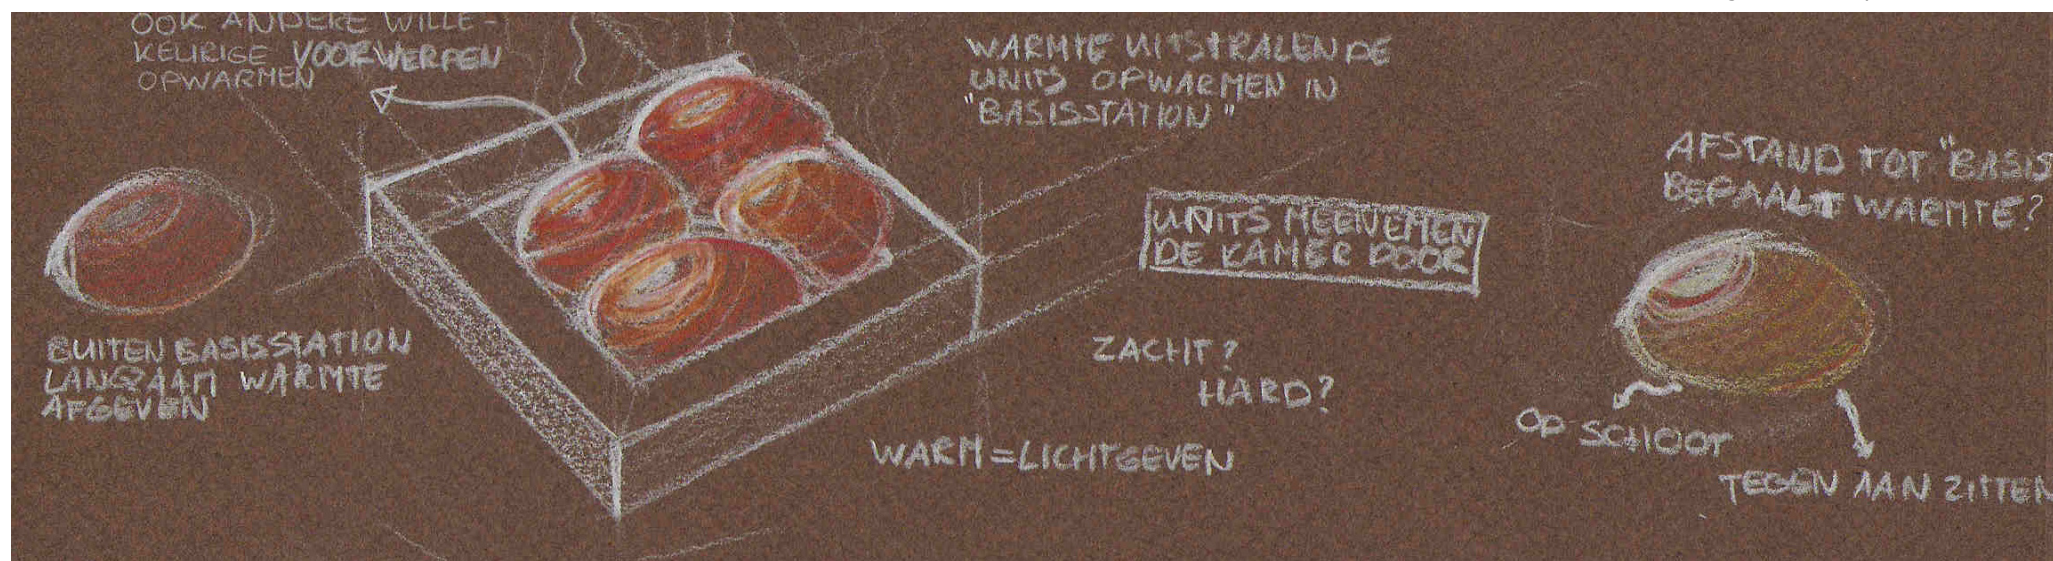 OOK ANDERE WILLE-
KEURIGE VOORWERPEN
OPWARMEN
WARMTE UITSTRALENDE
UNITS OPWARMEN IN
"BASISSTATION"
AFSTAND TOT "BASIS
BEPAALT WARMTE?
UNITS MEENEMEN
DE KAMER DOOR
BUITEN BASISSTATION
LANGZAAM WARMTE
AFGEVEN
ZACHT?
HARD?
WARM=LICHTGEVEN
OP SCHOOT
TEGEN AAN ZITTEN